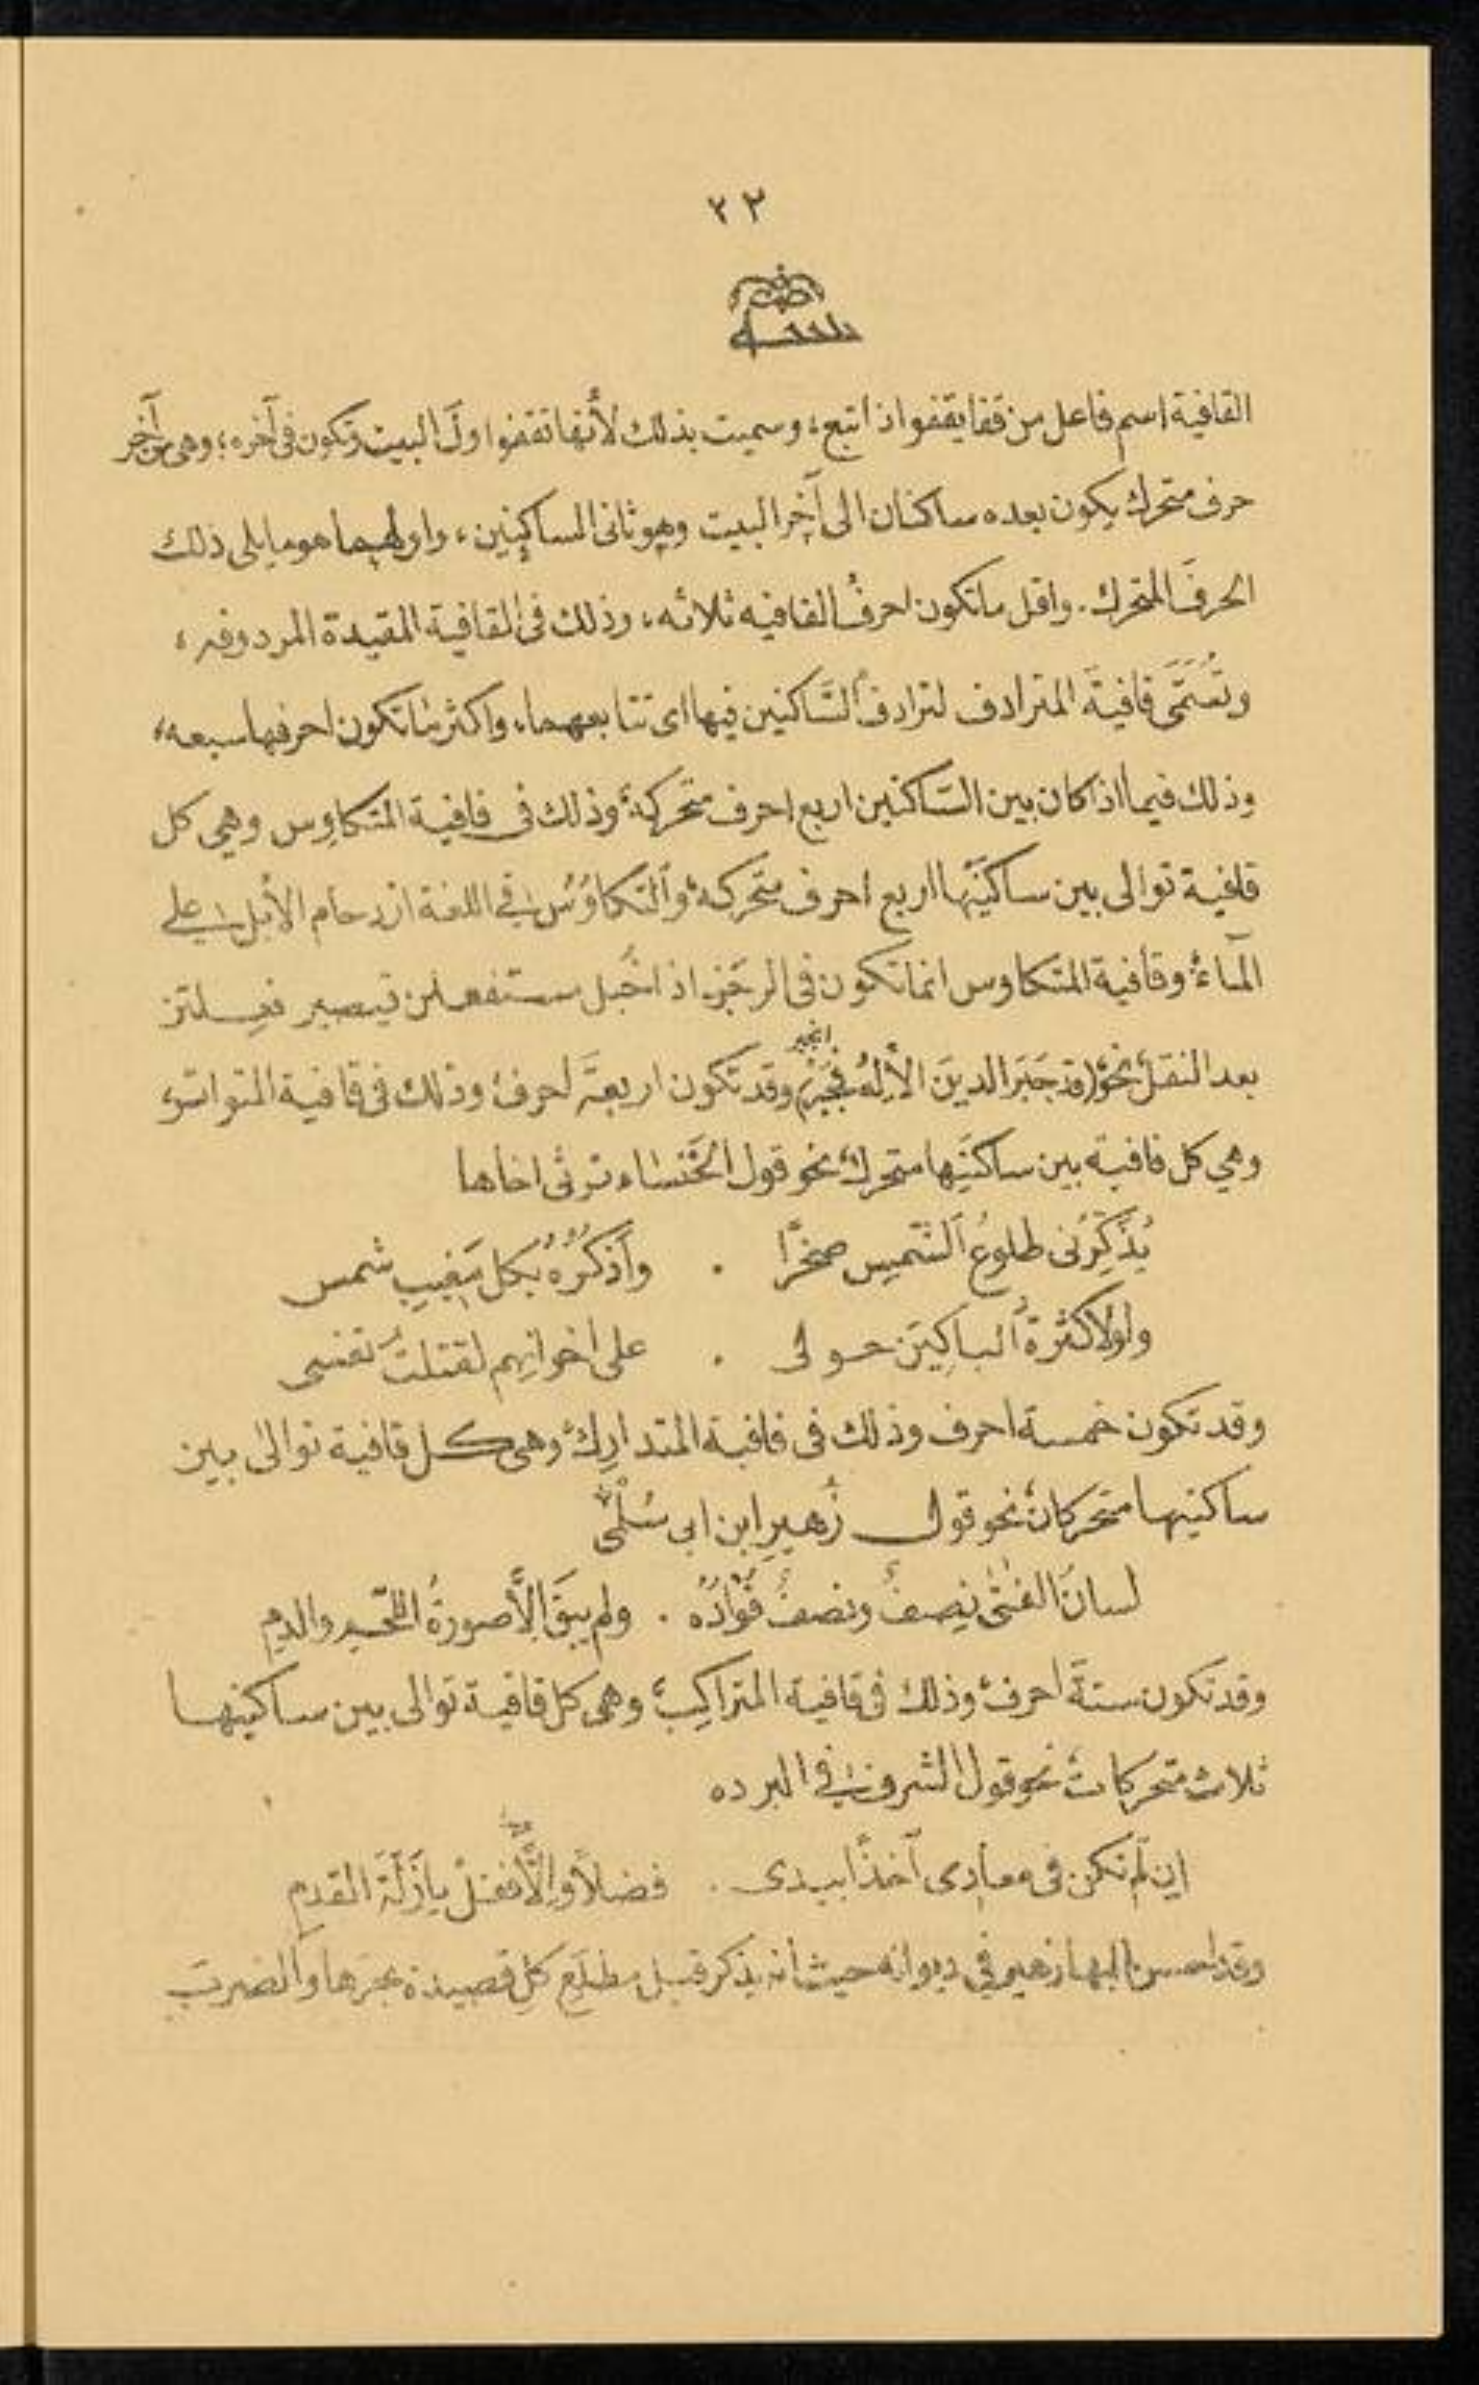 ٢٢
القافية اسم فاعل من قفا يقفو اذا تبع، وسميت بذلك لأنها تقفو اول البيت وتكون فى آخره؛ وهى من آخر
حرف متحرك يكون بعده ساكنان الى آخر البيت وهو ثانى الساكنين، واولهما هو ما يلى ذلك
الحرفَ المتحرك. واقل ما تكون احرفُ القافيه ثلاثه، وذلك فى القافية المقيدة المردوفه،
وتُسَمَّى قافيةَ المترادف لترادف السَّاكنين فيها اى تتابعهما، واكثر ما تكون احرفها سبعه،
وذلك فيما اذا كان بين السَّاكنين اربع احرف متحركة، وذلك فى قافية المتكاوِس وهي كل
قافية توالى بين ساكنَيْها اربع احرف متحَرِكه، والتكاوُسُ في اللغة ازدحام الأبل على
المآء، وقافية المتكاوس انما تكون فى الرجَز اذا خُبل مستفعلن فيصير فعِلتن
بعد النقل، نحو (قد جَبَرَ الدينَ الألهُ فجَبَرْ) وقد تكون اربعةَ احرف، وذلك فى قافية المتواتر،
وهي كل قافية بين ساكنَيها متحرك، نحو قول الخَنساء ترثى اخاها
يُذَكِّرُنى طلوعُ الشَّمسِ صخرًا . وأذكُرُهُ بكل مَغيبِ شمس
ولولا كثرةُ الباكِيَن حولى . على اخوانِهم لقتلتُ نفسى
وقد تكون خمسة احرف وذلك فى قافية المتدارِك، وهى كل قافية توالى بين
ساكنيها متحركان، نحو قول زُهيرِ ابن ابى سُلْمَى
لسانُ الفتىٰ نِصفٌ ونصفٌ فُوَادُه . ولم يبقَ الَّا صورةُ اللّحمِ والدمِ
وقد تكون ستةَ احرف، وذلك فى قافية المتراكِب، وهى كل قافية توالى بين ساكنيها
ثلاث متحَرِكات، نحو قول الشرف في البرده
ان لم تكن فى معادى آخذًا بيدى . فضلاً وإلَّا فقلْ يا زَلَّةَ القدمِ
وقد احسن البها زهير في ديوانه حيث أنه يذكر قبل مطلَع كل قصيدة بحرها والضربَ